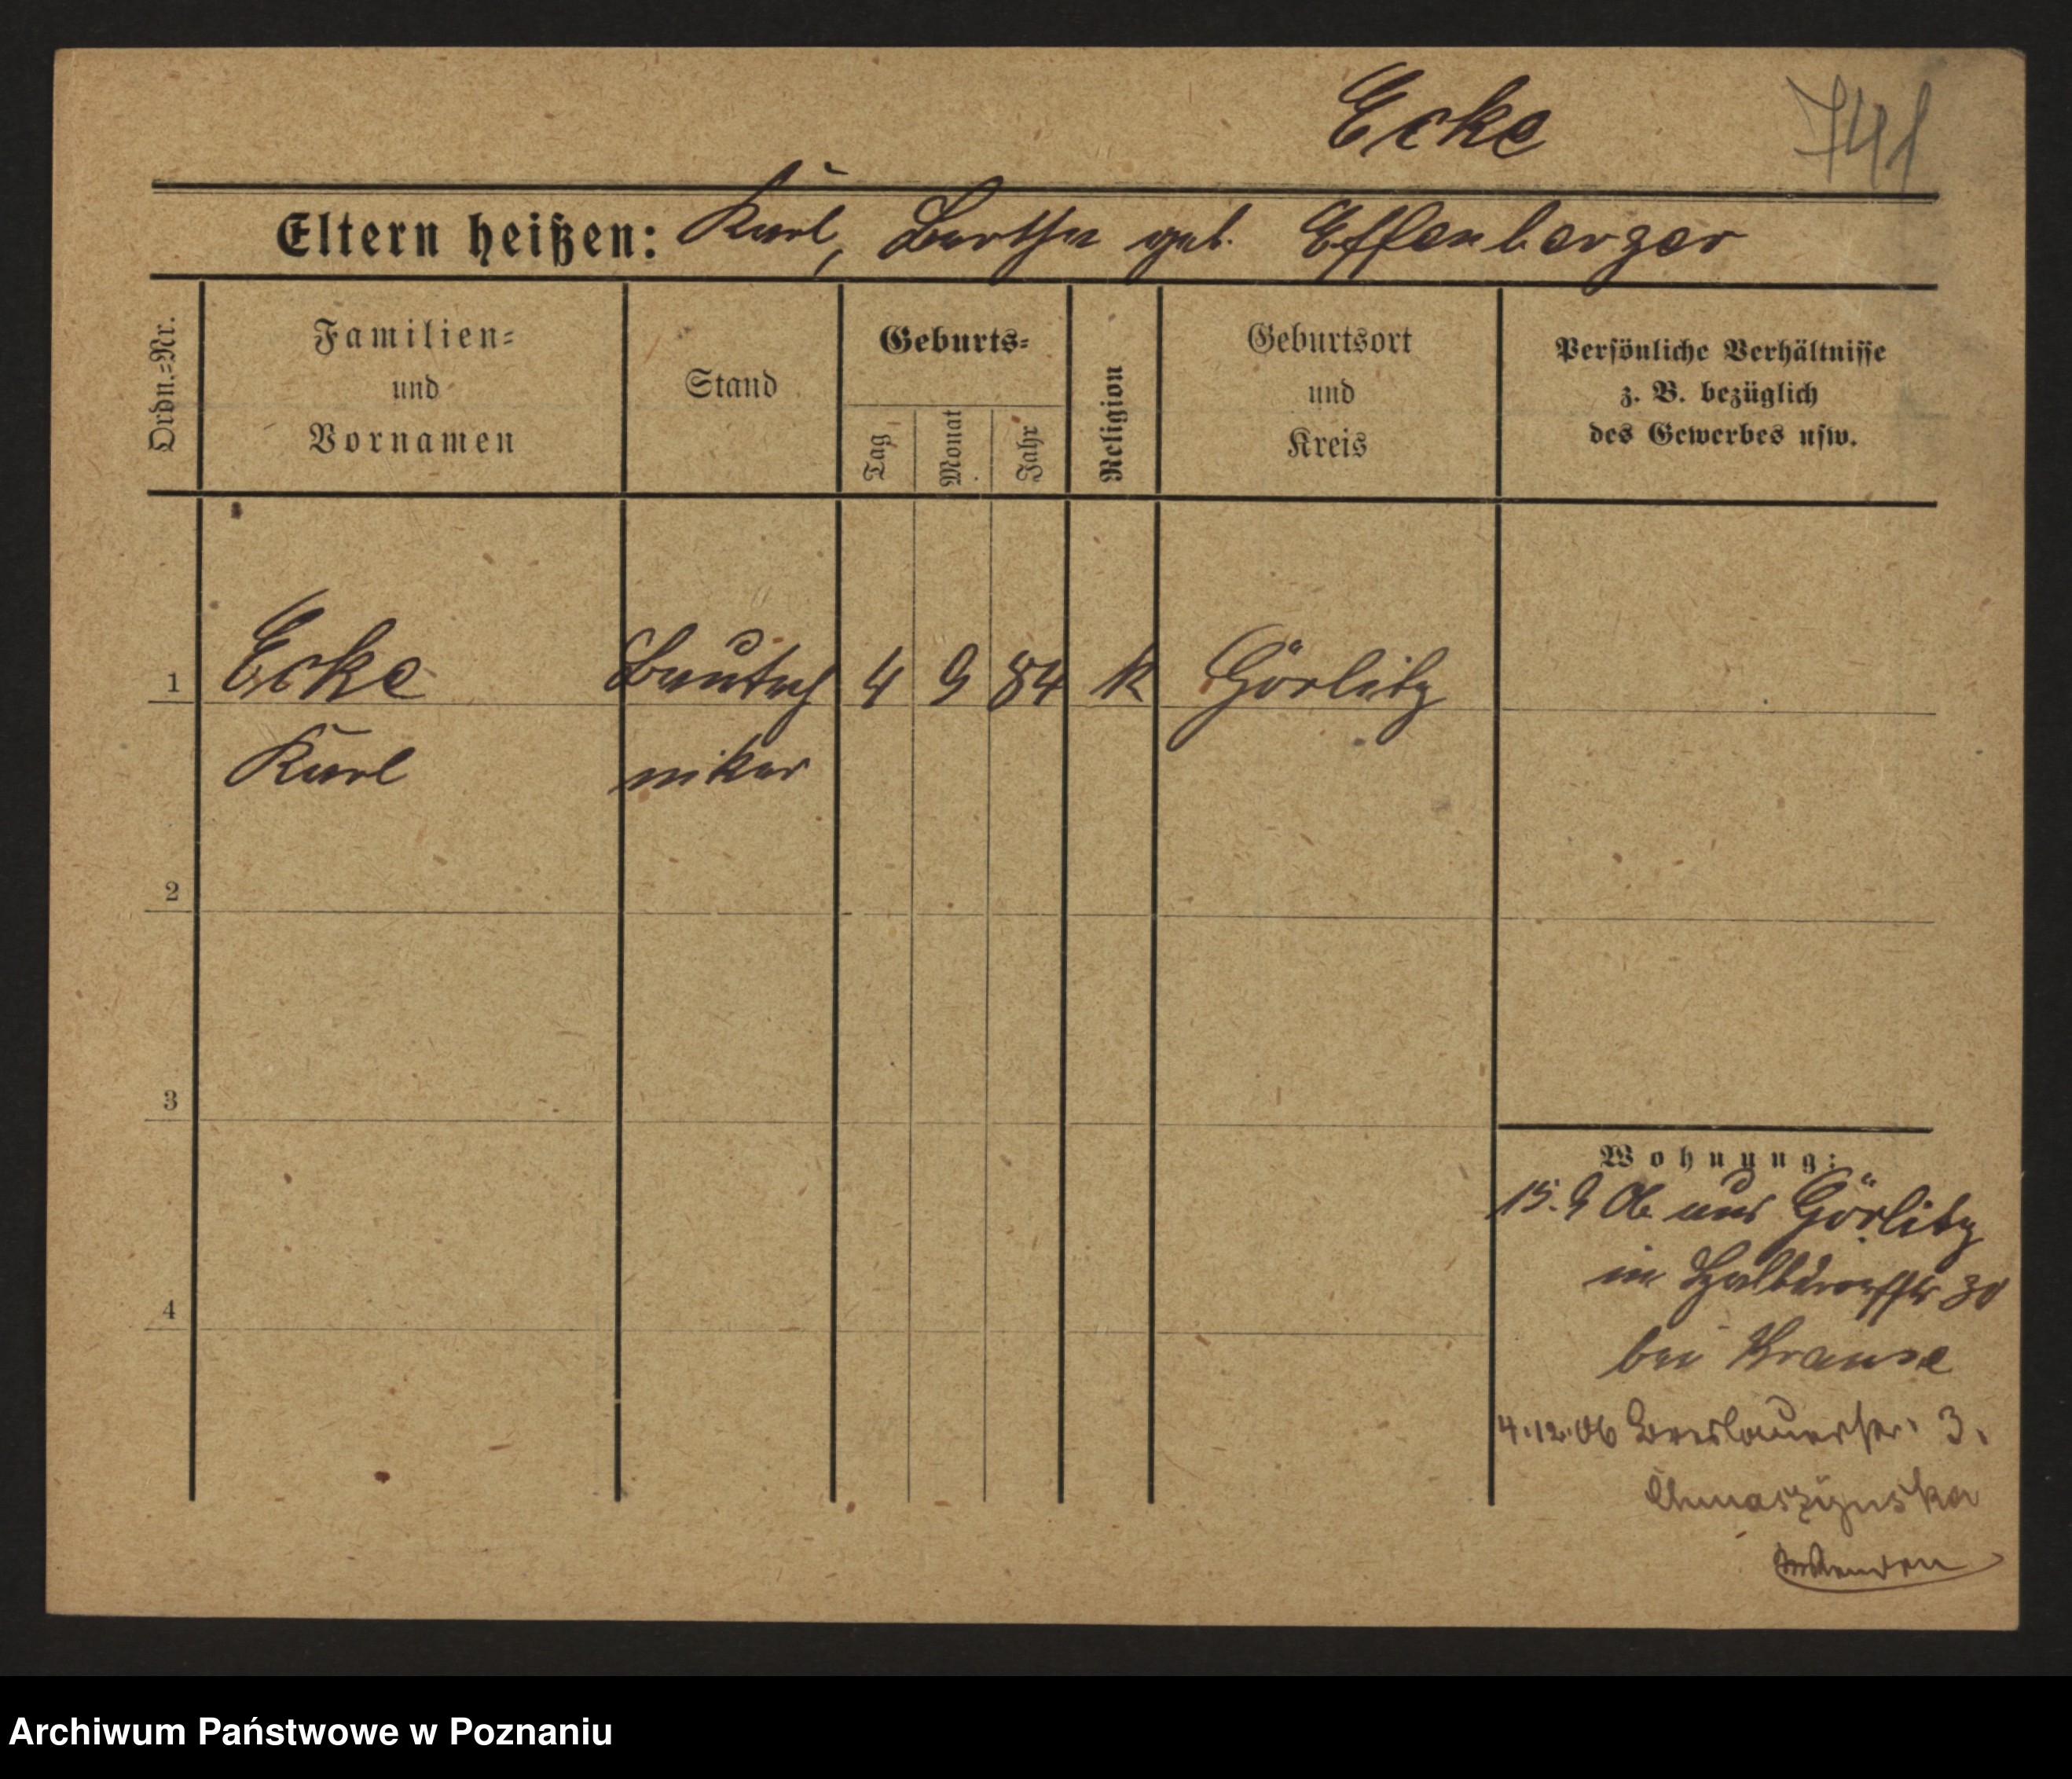 Ecke 741
Eltern heißen: Karl, Bertha geb. Effenberger
Ordn.=Nr.
Familien=
und
Vornamen
Stand
Geburts=
Tag
Monat
Jahr
Religion
Geburtsort
und
Kreis
Persönliche Verhältnisse
z. B. bezüglich
des Gewerbes usw.
1 Ecke Bautech 4 9 84 K Görlitz
Karl niker
2
3
4
Wohnung:
15. 9 06 aus Görlitz
in Halbdorfstr 30
bei Krause
4.12.06 Breslauerstr. 3.
Archiwum Państwowe w Poznaniu